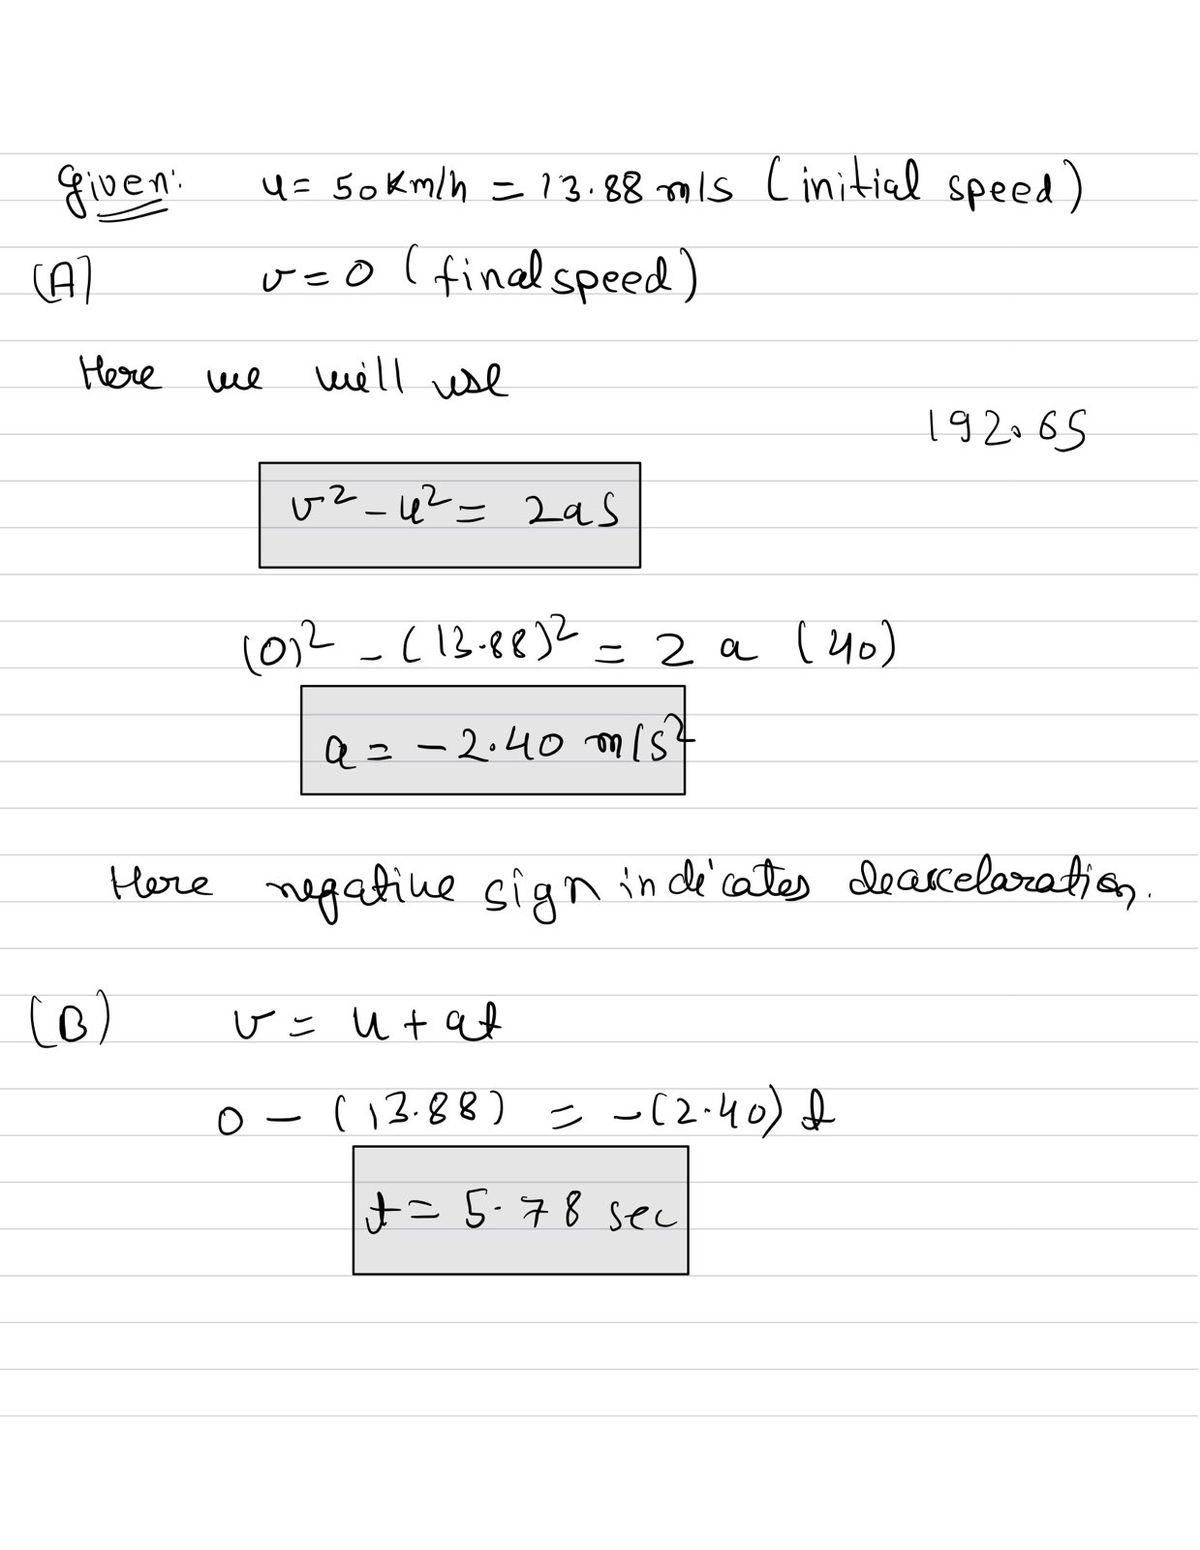 Given: u = 50 Km/h = 13.88 m/s (initial speed)
(A] v = 0 (final speed)
Here we will use
192.65
v² - u² = 2as
(0)² - (13.88)² = 2 a (40)
a = -2.40 m/s²
Here negative sign indicates dearcelaration.
(B) v = u + at
0 - (13.88) = -(2.40) t
t = 5.78 sec